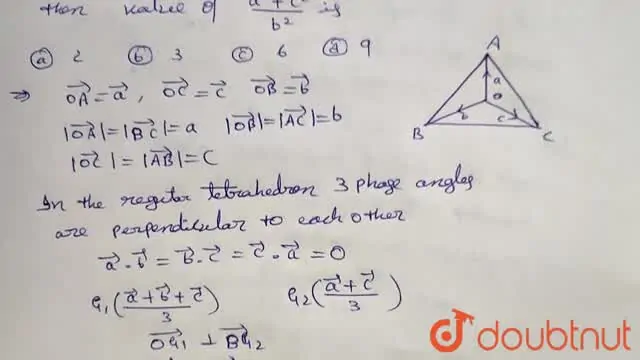 then value of a²+c² / b² is
(a) 2 (b) 3 (c) 6 (d) 9
⇒ OA⃗ = a⃗, OC⃗ = c⃗ OB⃗ = b⃗
|OA⃗| = |BC⃗| = a |OB⃗| = |AC⃗| = b
|OC⃗| = |AB⃗| = C
In the regular tetrahedron 3 phase angles
are perpendicular to each other
a⃗ · b⃗ = b⃗ · c⃗ = c⃗ · a⃗ = 0
G₁ (a⃗ + b⃗ + c⃗ / 3) G₂ (a⃗ + c⃗ / 3)
OG₁⃗ ⊥ BG₂⃗
A
a
O
b
c
B
C
doubtnut